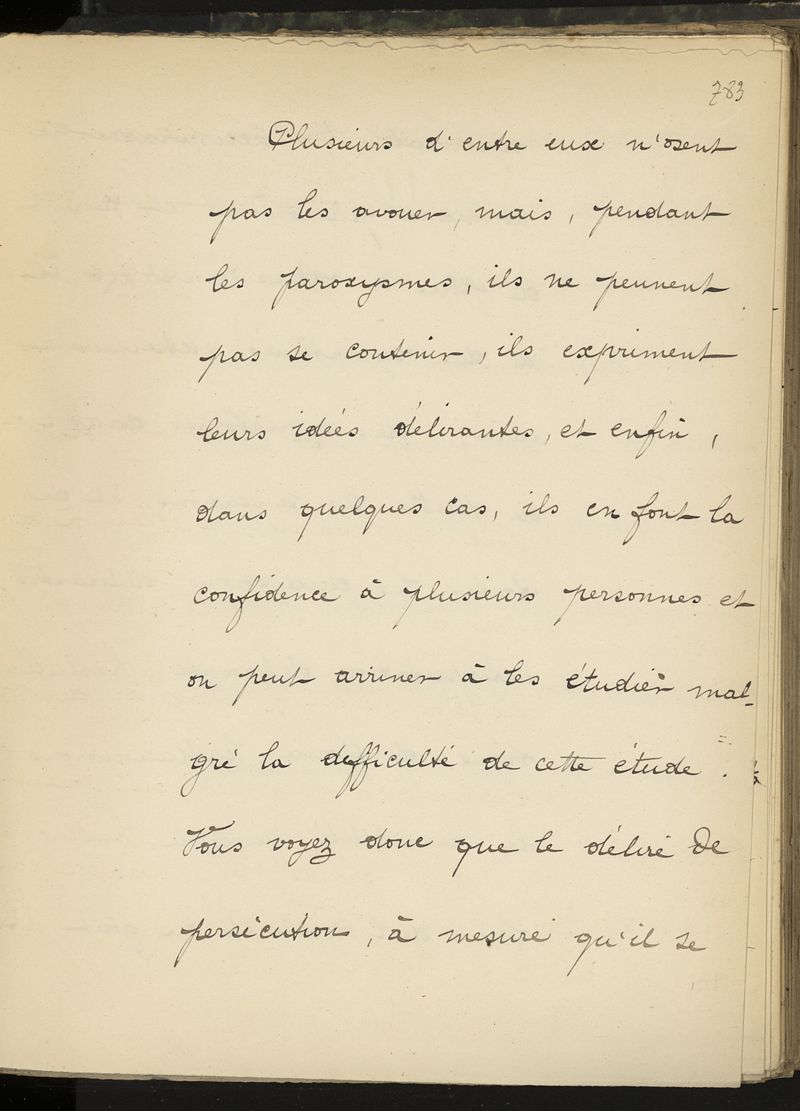 783
Plusieurs d'entre eux n'osent
pas les avouer, mais, pendant
les paroxysmes, ils ne peuvent
pas se contenir, ils expriment
leurs idées délirantes, et enfin,
dans quelques cas, ils en font la
confidence à plusieurs personnes et
on peut arriver à les étudier mal-
gré la difficulté de cette étude.
Vous voyez donc que le délire de
persécution, à mesure qu'il se